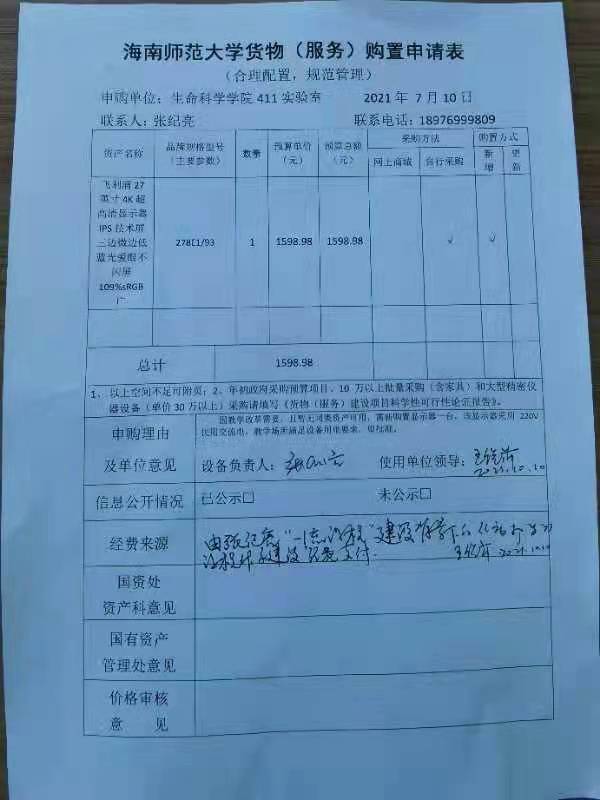 海南师范大学货物（服务）购置申请表
（合理配置，规范管理）
申购单位：生命科学学院 411 实验室 2021 年 7 月 10 日
联系人：张纪亮 联系电话:18976999809
资产名称 品牌规格型号（主要参数） 数量 预算单价（元） 预算总额（元） 采购方法 购置方式
网上商城 自行采购 新增 更新
飞利浦 27
英寸 4K 超
高清显示器
IPS 技术屏
三边微边低
蓝光爱眼不
闪屏
109%sRGB
广
278E1/93 1 1598.98 1598.98 √ √
总计 1598.98
1、以上空间不足可附页；2、年初政府采购预算项目、10 万以上批量采购（含家具）和大型精密仪
器设备（单价 30 万以上）采购请填写《货物（服务）建设项目科学性可行性论证报告》。
申购理由
及单位意见
因教学改革需要，且暂无同类资产可用，需新购置显示器一台。该显示器采用 220V
民用交流电，教学场所满足设备用电要求。望批准。
设备负责人： 使用单位领导：
2021.10.10
信息公开情况 已公示□ 未公示□
经费来源
"一流课程"建设
建设经费支付.
国资处
资产科意见
国有资产
管理处意见
价格审核
意 见